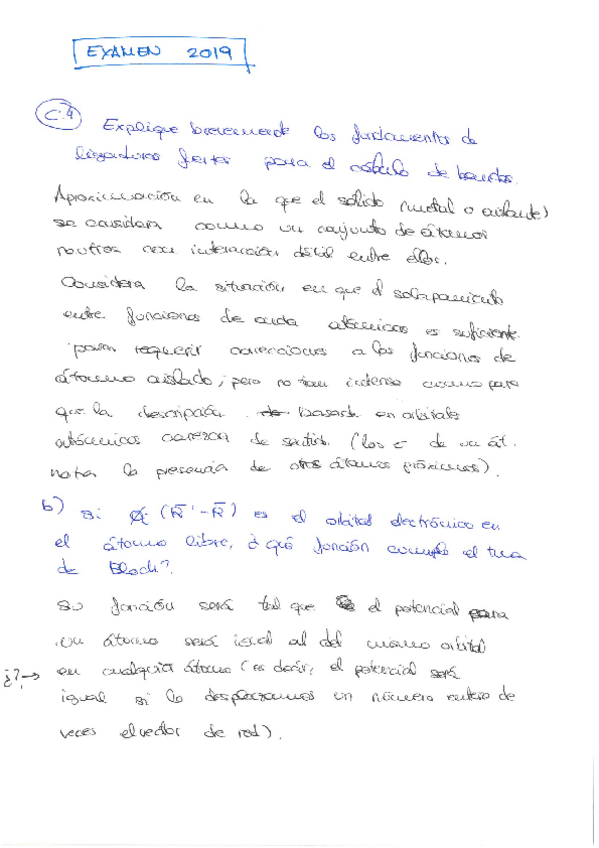 EXAMEN 2019
C.4 Explique brevemente los fundamentos de
ligaduras fuertes para el cálculo de bandas.
Aproximación en la que el sólido (metal o aislante)
se considera como un conjunto de átomos
neutros con interacción débil entre ellos.
Considera la situación en que el solapamiento
entre funciones de onda atómicas es suficiente
para requerir correcciones a las funciones de
átomo aislado, pero no tan intenso como para
que la descripción basada en orbitales
atómicos carezca de sentido. (los e- de un át.
notan la presencia de otros átomos próximos).
b) Si φi (R̄' - R̄) es el orbital electrónico en
el átomo libre, ¿qué función cumple el tma
de Bloch?
Su función será tal que el potencial para
un átomo será igual al del mismo orbital
¿?→ en cualquier átomo (es decir, el potencial será
igual si lo desplazamos un número entero de
veces el vector de red).